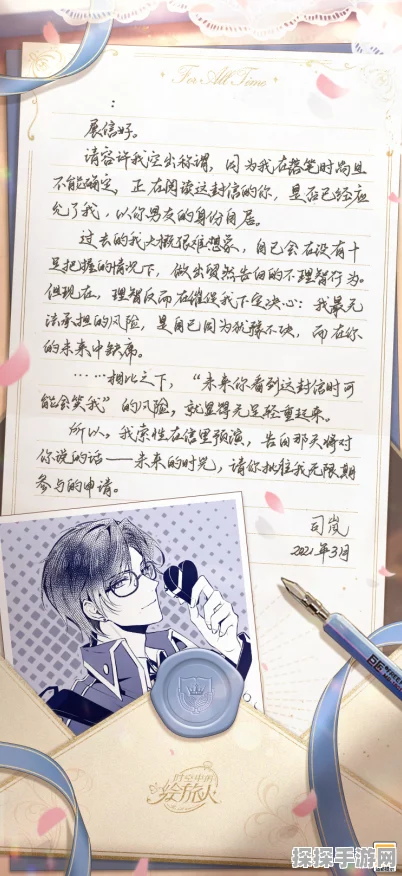 For All Time
：
展信好。
请容许我空出称谓，因为我在落笔时尚且
不能确定，正在阅读这封信的你，是否已经应
允了我，以你男友的身份自居。
过去的我大概很难想象，自己会在没有十
足把握的情况下，做出贸然告白的不理智行为。
但现在，理智反而在催促我下定决心：我最无
法承担的风险，是自己因为犹豫不决，而在你
的未来中缺席。
……相比之下，“未来你看到这封信时可
能会笑我”的风险，就显得无足轻重起来。
所以，我索性在信里预演，告白那天将对
你说的话——未来的时光，请你批准我无限期
参与的申请。
司岚
2021年3月
时空中的
绘旅人
探探手游网